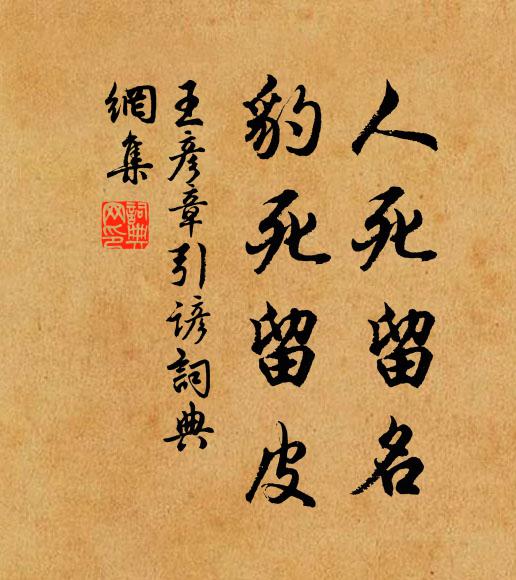 人死留名
豹死留皮
王彦章引諺詞典
網集
詞典
网印